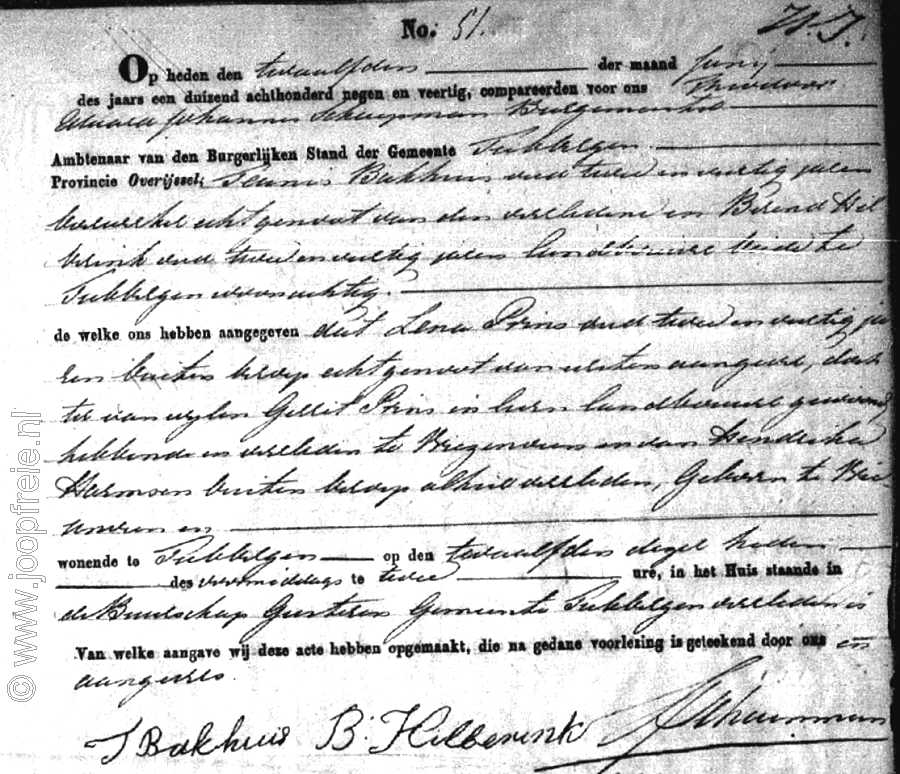 No. 51.
Op heden den twaalfden der maand Junij
des jaars een duizend achthonderd negen en veertig, compareerden voor ons Theodoor
Eduard Johannes Schaepman Burgemeester
Ambtenaar van den Burgerlijken Stand der Gemeente Tubbergen
Provincie Overijssel; Teunis Bakhuis oud twee en veertig jaren
echtgenoot van den overledene en Berend Hel
brink oud twee en veertig jaren landbouwers beide te
Tubbergen woonachtig.
de welke ons hebben aangegeven dat Lena Prins oud twee en veertig ja
ren buiten beroep echtgenoot van eersten aangever, doch
ter van wylen Gerrit Prins in leven landbouwer gewoond
hebbende en overleden te Vriezenveen en van Hendrika
Harmsen buiten beroep alhier overleden, Geboren te Vrie-
zenveen en
wonende te Tubbergen op den twaalfden dezer heden
des voormiddags te twee ure, in het Huis staande in
de Buurschap Geesteren Gemeente Tubbergen overleden is
Van welke aangave wij deze acte hebben opgemaakt, die na gedane voorlezing is geteekend door ons en
aangevers.
T Bakhuis B. Hilberink Schaepman
© www.joopfreie.nl